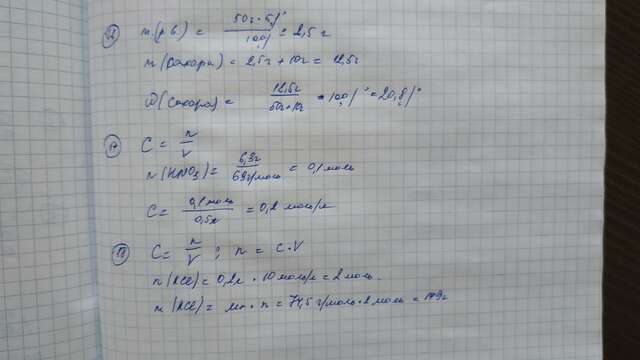 m(р.в.) = 50г · 5% / 100% = 2,5 г
m(сахара) = 2,5г + 10г = 12,5г
ω(сахара) = 12,5г / 50г+10г · 100% = 20,8%
17 C = n / V
n(HNO3) = 6,3г / 63г/моль = 0,1 моль
C = 0,1 моль / 0,5л = 0,2 моль/л
18 C = n / V ; n = C · V
n(KCl) = 0,2л · 10 моль/л = 2 моль.
m(KCl) = m · n = 74,5 г/моль · 2 моль = 149г